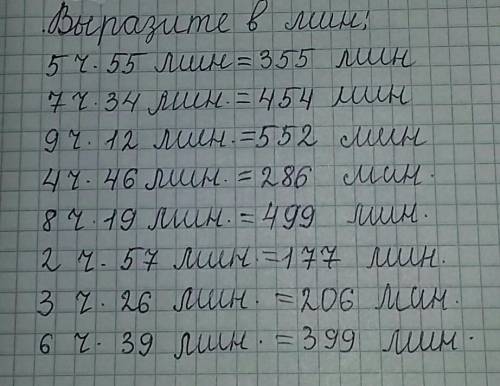 Выразите в мин:
5 ч. 55 мин = 355 мин
7 ч. 34 мин. = 454 мин
9 ч. 12 мин. = 552 мин
4 ч. 46 мин. = 286 мин.
8 ч. 19 мин. = 499 мин.
2 ч. 57 мин. = 177 мин.
3 ч. 26 мин. = 206 мин.
6 ч. 39 мин. = 399 мин.